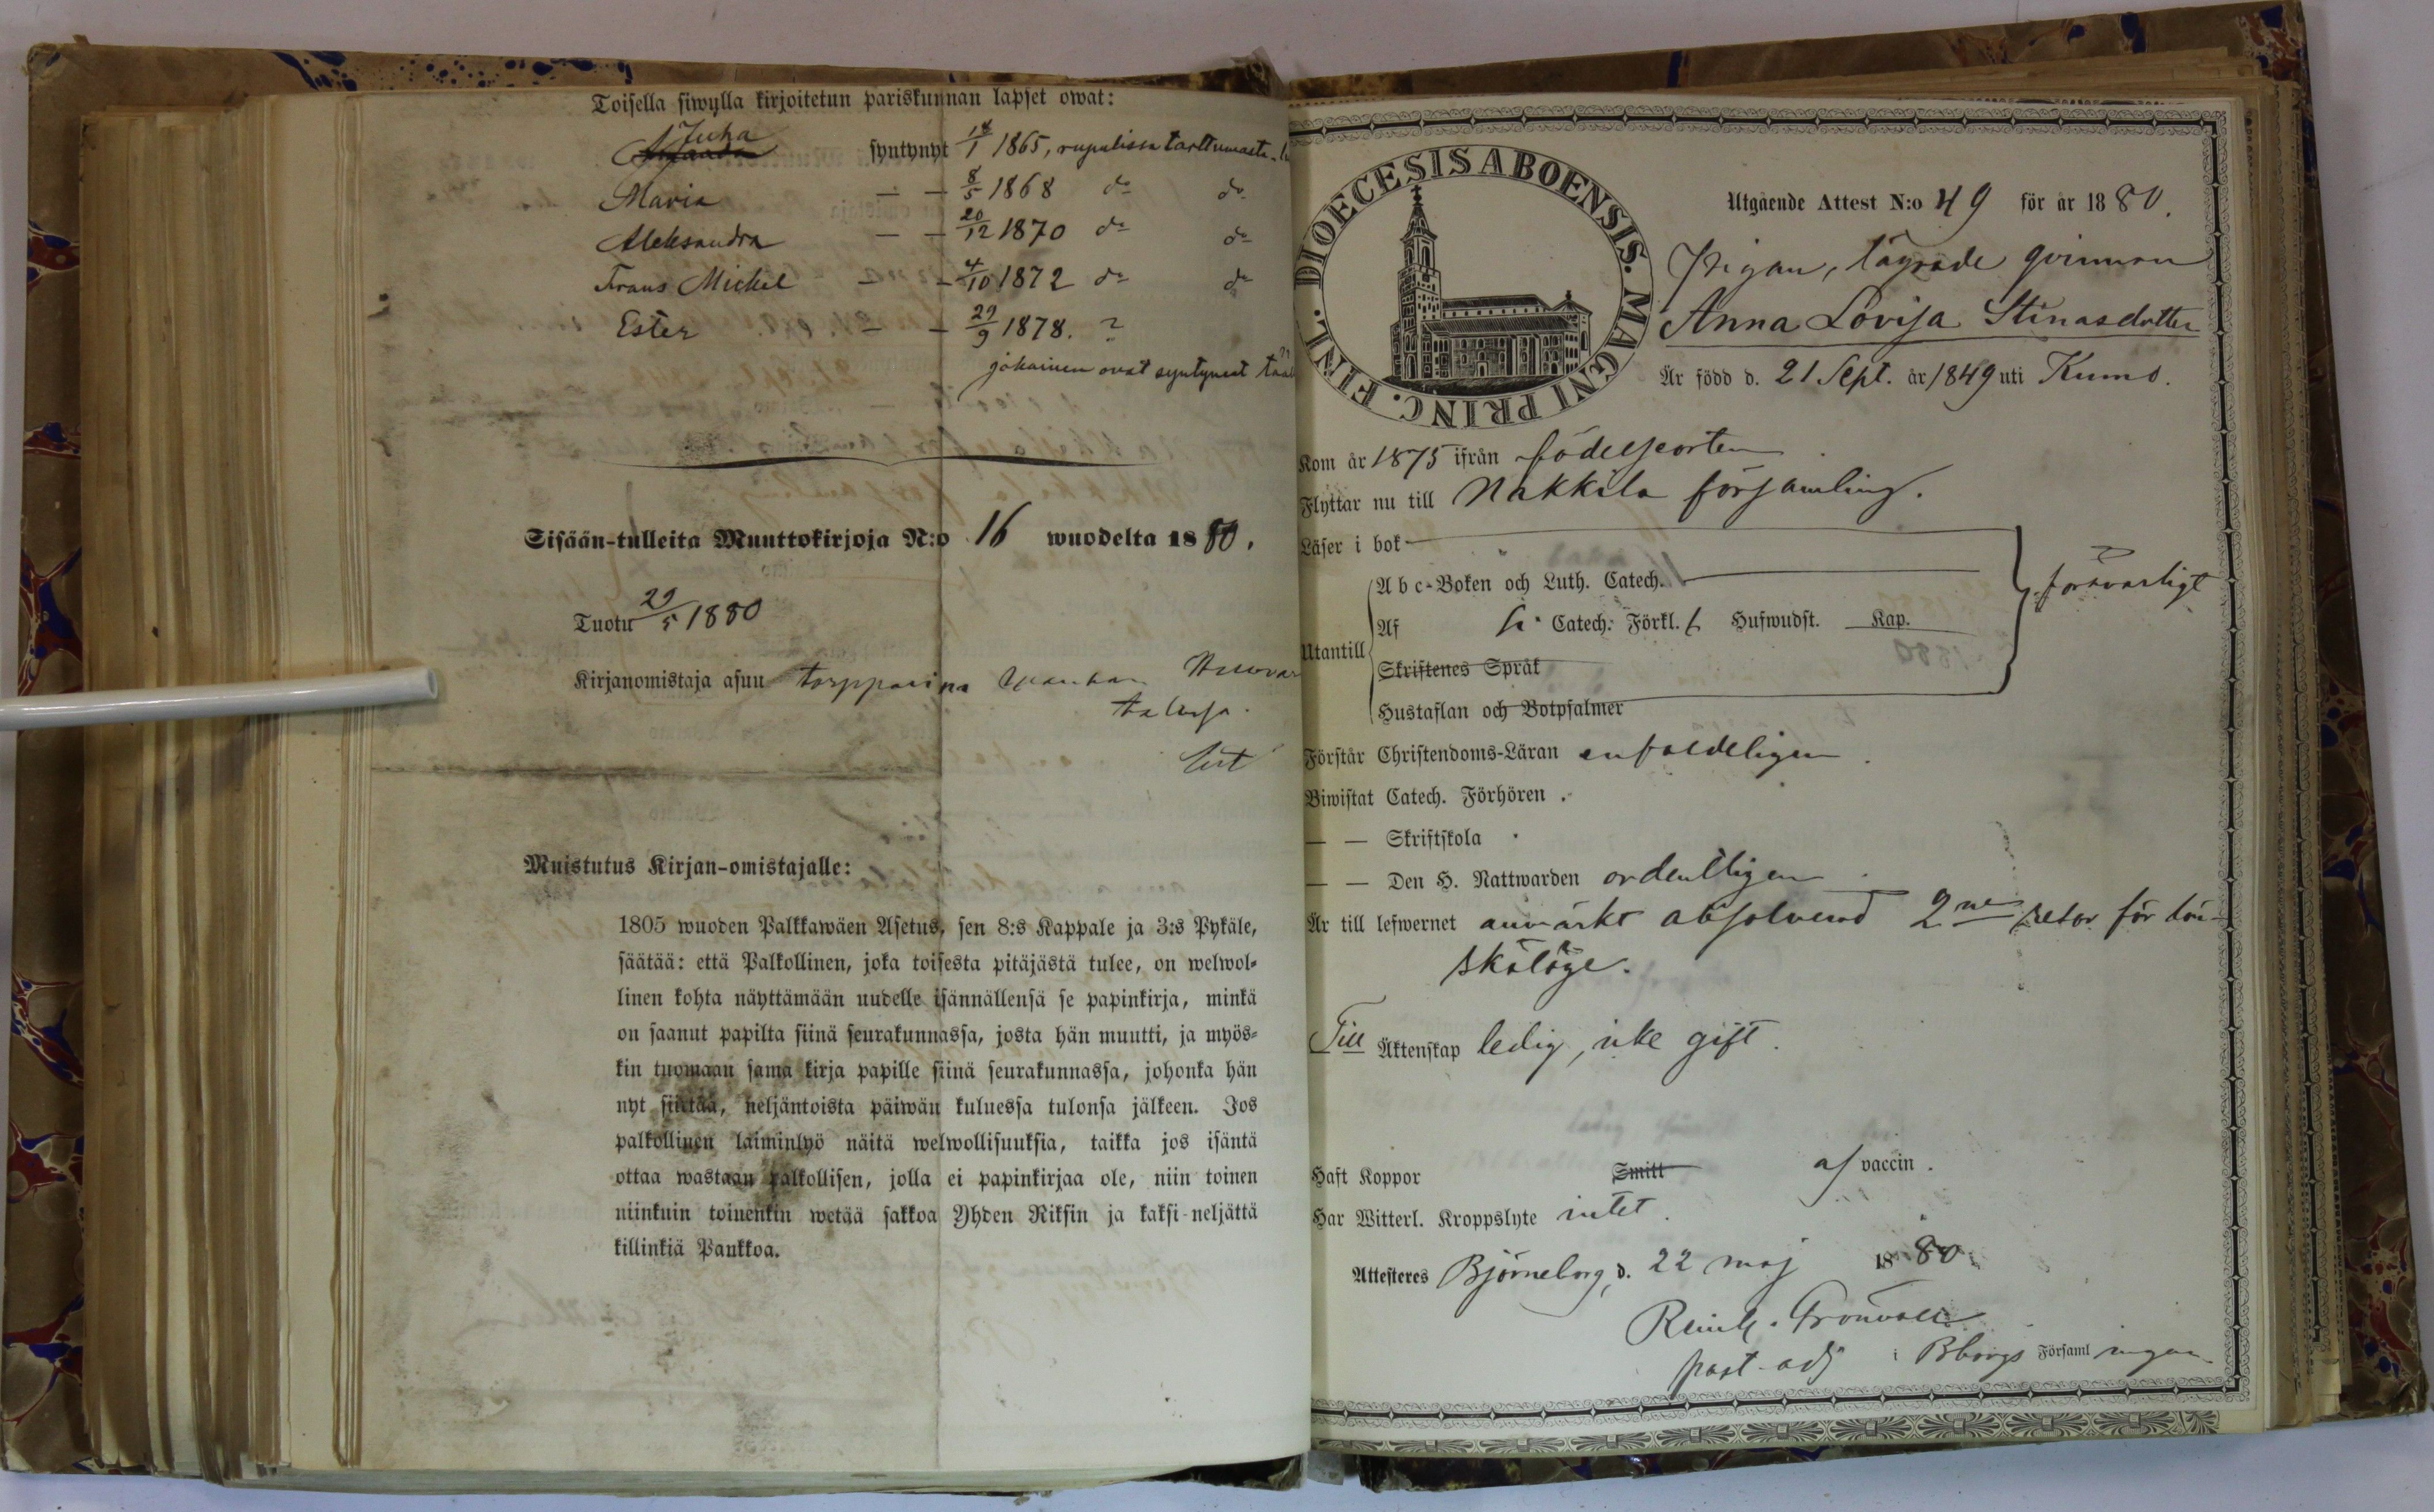 Toisella siwylla kirjoitetun pariskunnan lapset owat:
Juha
syntynyt 18/1 1865, rupulissa tarttumasta
Maria — — 8/5 1868 do do
Aleksandra — — 20/12 1870 do do
Frans Mickel — — 4/10 1872 do do
Ester — — 29/9 1878. ?
jokainen ovat syntyneet
Sisään-tulleita Muuttokirjoja N:o 16 wuodelta 1880.
Tuotu 29/5 1880
Kirjanomistaja asuu torpparina
talossa.
Muistutus Kirjan-omistajalle:
1805 wuoden Palkkawäen Asetus, sen 8:s Kappale ja 3:s Pykäle,
säätää: että Palkollinen, joka toisesta pitäjästä tulee, on welwol-
linen kohta näyttämään uudelle isännällensä se papinkirja, minkä
on saanut papilta siinä seurakunnassa, josta hän muutti, ja myös-
kin tuomaan sama kirja papille siinä seurakunnassa, johonka hän
nyt siirtää, neljäntoista päiwän kuluessa tulonsa jälkeen. Jos
palkollinen laiminlyö näitä welwollisuuksia, taikka jos isäntä
ottaa wastaan palkollisen, jolla ei papinkirjaa ole, niin toinen
niinkuin toinenkin wetää sakkoa Yhden Riksin ja kaksi-neljättä
killinkiä Pankkoa.
DIOECESIS ABOENSIS. MAGNI PRINC. FINL.
Utgående Attest N:o 49 för år 1880.
Pigan, lägrade qvinnan
Anna Lovisa Stinasdotter
Är född d. 21 Sept. år 1849 uti Kumo.
Kom år 1875 ifrån födelseorten
Flyttar nu till Nakkila församling.
Läser i bok
Abc-Boken och Luth. Catech.
försvarligt
Af Catech. Förkl. Hufwudst. Kap.
Utantill
Skriftenes Språk
Hustaflan och Botpsalmer
Förstår Christendoms-Läran enfaldeligen.
Biwistat Catech. Förhören.
— — Skriftskola
— — Den H. Nattwarden ordentligen
Är till lefwernet anmärkt absolverad 2ne resor för lön-
skaläge.
Till Äktenskap ledig, icke gift.
Haft Koppor Smitt af vaccin.
Har Witterl. Kroppslyte intet.
Attesteres Björneborg, d. 22 maj 1880.
Reinh. Grönvall
past. adj i Bborgs Församlingen